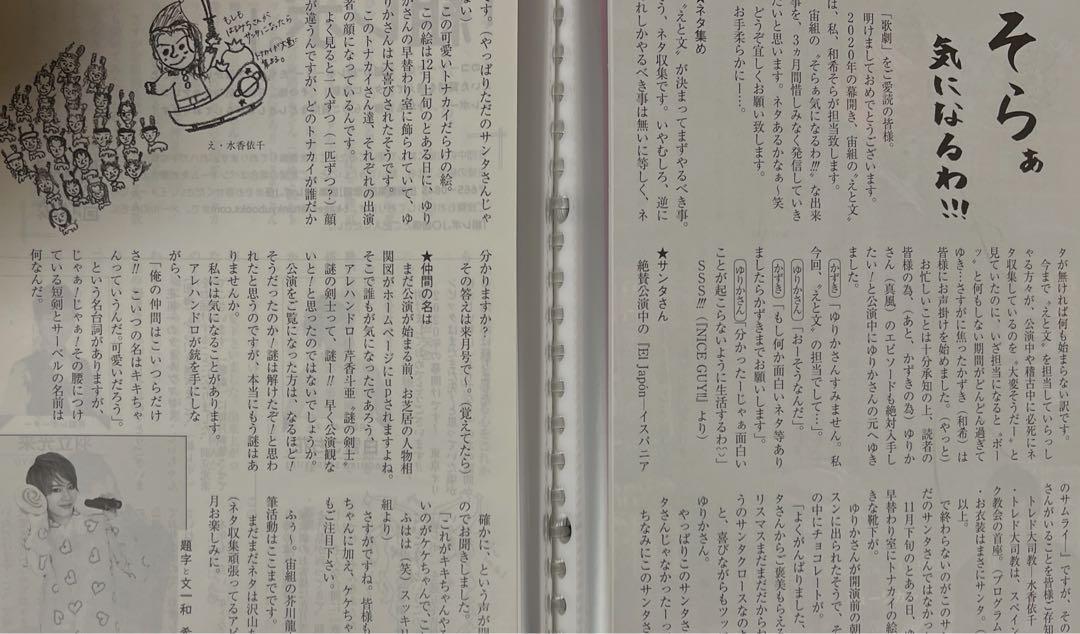 そらぁ
気になるわ!!!
「歌劇」をご愛読の皆様。
明けましておめでとうございます。
2020年の幕開き、宙組の〝えと文〟
は、私、和希そらが担当致します。
宙組の〝そらぁ気になるわ!!!〟な出来
事を、3ヵ月間惜しみなく発信していき
たいと思います。ネタあるかなぁ〜笑
どうぞ宜しくお願い致します。
お手柔らかに…。
★ネタ集め
〝えと文〟が決まってまずやるべき事。
そう、ネタ収集です。いやむしろ、逆に
これしかやるべき事は無いに等しく、ネ
タが無ければ何も始まらない訳です。
今まで〝えと文〟を担当していらっし
ゃる方々が、公演中や稽古中に必死にネ
タ収集しているのを〝大変そうだー〟と
見ていたのに、いざ担当になると、〝ボー
ッ〟と何もしない期間がどんどん過ぎて
ゆき…さすがに焦ったかずき（和希）は
皆様にお声掛けを始めました。（やっと）
お忙しいことは十分承知の上、読者の
皆様の為、（あと、かずきの為）ゆりか
さん（真風）のエピソードも絶対入手し
たい！と公演中にゆりかさんの元へゆき
ました。
かずき「ゆりかさんすみません。私
今回、〝えと文〟の担当でして…。
ゆりかさん「おーそうなんだ」。
かずき「もし何か面白いネタ等あり
ましたらかずきまでお願いします」。
ゆりかさん「分かったーじゃぁ面白い
ことが起こらないように生活するわ
SSS!!!（『NICE GUY!!』より）
★サンタさん
絶賛公演中の『El Japón－イスパニア
のサムライ－』ですが、その
さんがいることを皆様ご存知
トレド大司教…水香依千
・トレド大司教は、スペイン
ク教会の首座。（プログラム
お衣装はまさにサンタ。
以上。
で終わらないのがこのサ
だのサンタさんではなかっ
11月下旬のとある日、
早替わり室にトナカイの絵
きな靴下が。
ゆりかさんが開演前の朝
スンに出られたそうで、そ
の中にチョコレートが。
「よくがんばりました、
タさんからご褒美もらえる
リスマスまだまだだからお
うのサンタクロースなの
と、喜びながらもツッ
ゆりかさん。
やっぱりこのサンタさ
タさんじゃなかった…
ちなみにこのサンタさ
です。（やっぱりただのサンタさんじゃ
ない）
この可愛いトナカイだらけの絵。
この絵は12月上旬のとある日に、ゆり
かさんの早替わり室に飾られていて、ゆ
りかさんは大喜びされたそうです。
このトナカイさん達、それぞれの出演
者の顔になっているんです。
よく見ると一人ずつ（一匹ずつ？）顔
が違うんですが、どのトナカイが誰だか
え・水香依千
分かりますか？
その答えは来月号で〜。（覚えてたら）
★仲間の名は
まだ公演が始まる前、お芝居の人物相
関図がホームページにupされますよね。
そこで誰もが気になったであろう、
アレハンドロー芹香斗亜〝謎の剣士〟
謎の剣士って、謎ー!! 早く公演観な
いと！と思ったのではないでしょうか。
公演をご覧になった方は、なるほど！
そうだったのか！謎は解けたぞ！と思わ
れたと思うのですが、本当にもう謎はあ
りませんか。
私には気になることがあります。
アレハンドロが銃を手にしな
がら、
「俺の仲間はこいつらだけ
さ!! こいつの名はキキちゃ
んっていうんだ。可愛いだろう」。
という名台詞がありますが、
じゃぁ！じゃぁ！その腰につけ
ている短剣とサーベルの名前は
何なんだ。
確かに、という声が聞
のでお聞きしました。
「これがキキちゃんやろ
いのがケケちゃんで、こ
ふはは（笑）スッキリ
組より
さすがですね。皆様も
ちゃんに加え、ケケちゃ
もご注目下さい。
ふぅ〜。宙組の芥川龍
筆活動はここまでです。
まだまだネタは沢山も
（ネタ収集頑張ってるアピ
月お楽しみに。
題字と文―和 希